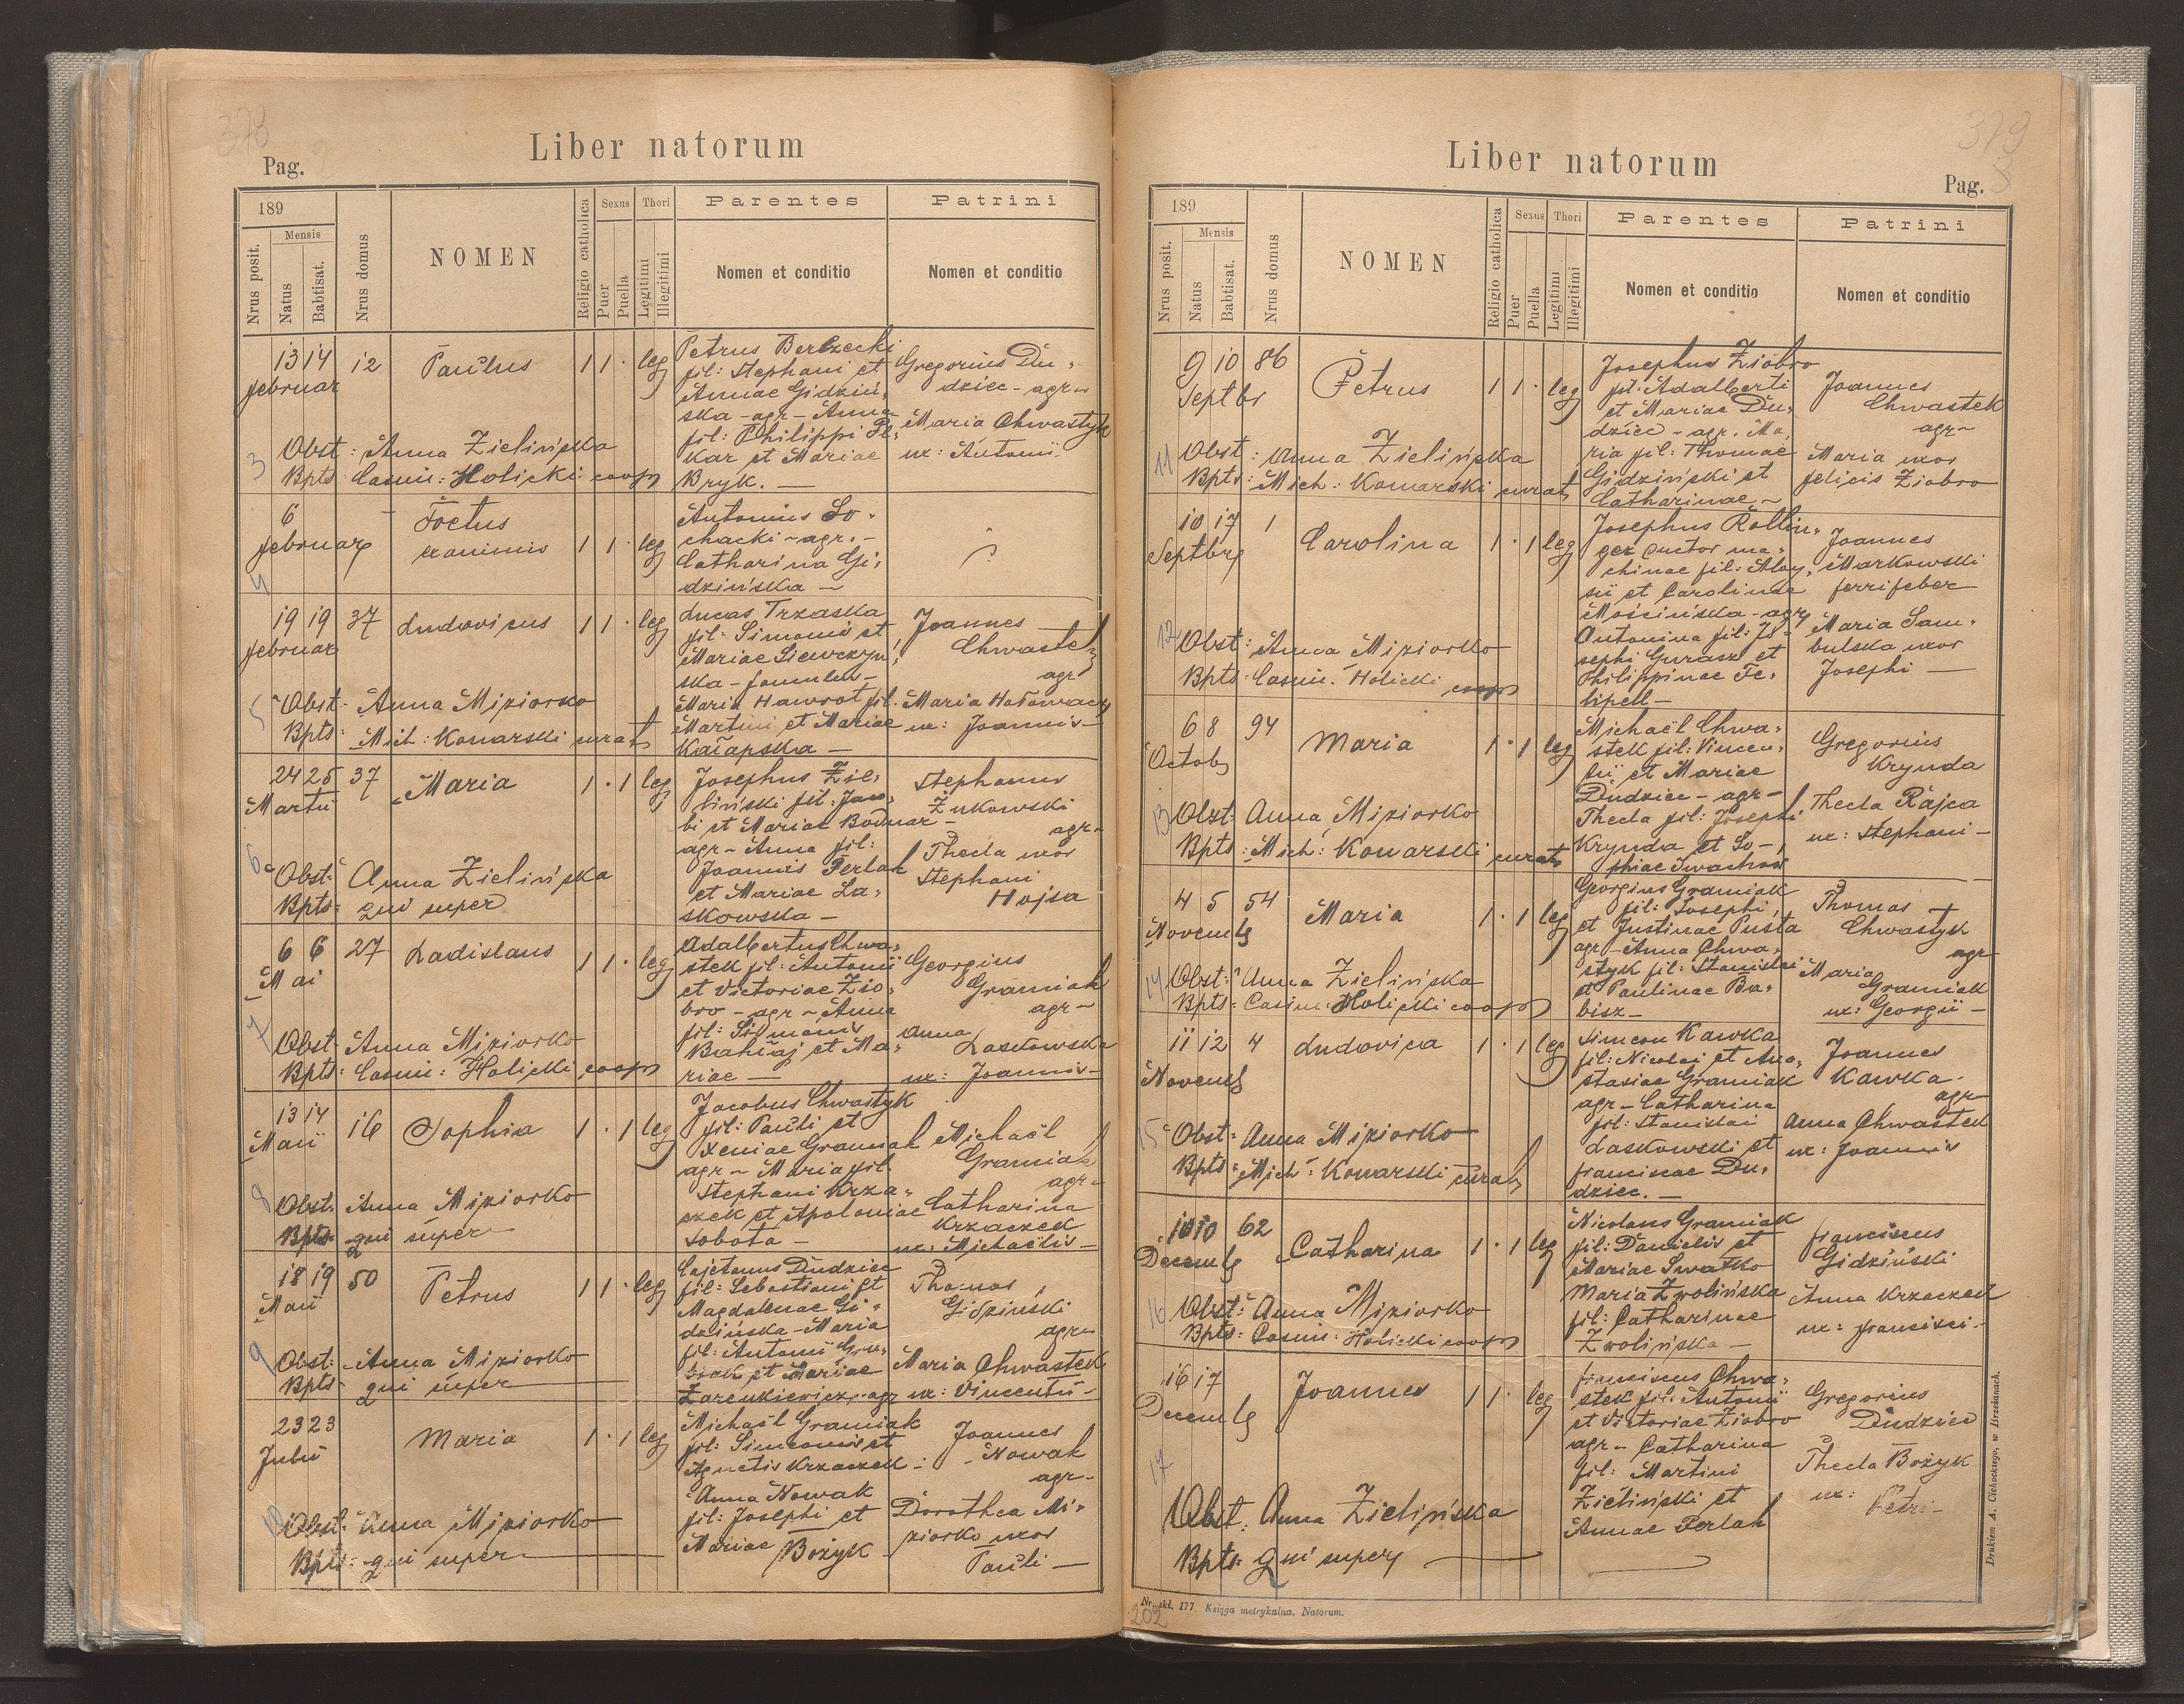 378
Liber natorum
Pag.
189
Mensis
Nrus posit.
Natus
Babtisat.
Nrus domus
NOMEN
Religio catholica
Sexus
Puer
Puella
Thori
Legitimi
Illegitimi
Parentes
Nomen et conditio
Patrini
Nomen et conditio
13 14 12 Paulus 1 1 · leg
februar
Petrus Berezecki
fil: Stephani et
Annae Gidziń,
ska - agr - Anna
fil: Philippi
kar et Mariae
Bryk. —
Gregorius Du,
dziec - agr -
Maria Chwastyk
ux: Antonii
3 Obst: Anna Zielińska
Bpts: Casim: Holicki coop
6 - Foetus
februar exanimis 1 1 · leg
Antonius Lo,
chacki - agr. -
Catharina Gi,
dzińska —
4
19 19 37 Ludovicus 1 1 · leg
februar
Lucas Trzaska
fil: Simonis et
Mariae
ska - famulus -
Maria Hawrot fil.
Martini et Mariae
Joannes
Chwastek
agr
Maria
ux: Joannis -
5 Obst: Anna Miziorko
Bpts: Mich: Konarski curat
24 25 37 Maria 1 · 1 leg
Martii
Josephus Zie,
liński fil: Jaco,
bi et Mariae Bodnar -
agr - Anna fil:
Joannis Ferlak
et Mariae La,
skowska —
Stephanus
Żukowski
agr -
Thecla uxor
Stephani
Hojsa
6 Obst: Anna Zielińska
Bpts: qui super
6 6 27 Ladislaus 1 1 · leg
Mai
Adalbertus Chwa,
stek fil: Antonii
et Victoriae Zio,
bro - agr - Anna
fil: Simonis
et Ma,
riae —
Georgius
Gramiak
agr -
Anna
Laskowska
ux: Joannis -
7 Obst: Anna Miziorko
Bpts: Casim: Holicki coop
13 14 16 Sophia 1 · 1 leg
Maii
Jacobus Chwastyk
fil: Pauli et
Xeniae Gramiak
agr - Maria fil.
Stephani Krza,
czek et Apoloniae
Sobota —
Michaël
Gramiak
agr -
Catharina
Krzaczek
ux: Michaëlis -
8 Obst: Anna Miziorko
Bpts: qui super
18 19 50 Petrus 1 1 · leg
Maii
Cajetanus Dudziec
fil: Sebastiani et
Magdalenae Gi,
dzińska - Maria
fil: Antonii
et Mariae
Zarenkiewicz - agr
Thomas
Gidziński
agr -
Maria Chwastek
ux: Vincentii -
9 Obst: Anna Miziorko
Bpts: qui super
23 23 Maria 1 · 1 leg
Julii
Michaël Gramiak
fil: Simeonis et
Agnetis Krzaczek -
Anna Nowak
fil: Josephi et
Mariae Bożyk
Joannes
Nowak
agr -
Dorothea Mi,
ziorko uxor
Pauli —
10 Obst: Anna Miziorko
Bpts: qui super
379
Liber natorum
Pag.
189
Mensis
Nrus posit.
Natus
Babtisat.
Nrus domus
NOMEN
Religio catholica
Sexus
Puer
Puella
Thori
Legitimi
Illegitimi
Parentes
Nomen et conditio
Patrini
Nomen et conditio
9 10 86 Petrus 1 1 · leg
Septbr
Josephus Ziobro
fil: Adalberti
et Mariae Du,
dziec - agr. Ma,
ria fil: Thomae
Gidziński et
Catharinae -
Joannes
Chwastek
agr -
Maria uxor
felicis Ziobro
11 Obst: Anna Zielińska
Bpts: Mich: Konarski curat
10 17 1 Carolina 1 · 1 leg
Septbr
Josephus
chinae fil: Aloy,
sii et Carolinae
Mościńska - agr
Antonina fil: Jo,
sephi Gurasz et
Philippinae Fe,
Joannes
Markowski
ferrifeber
Maria Sam,
bulska uxor
Josephi —
12 Obst: Anna Miziorko
Bpts: Casim: Holicki coop
6 8 94 Maria 1 · 1 leg
Octob
Michaël Chwa,
stek fil: Vincen,
tii et Mariae
Dudziec - agr -
Thecla fil: Josephi
Krynda et So-,
phiae Iwachow
Gregorius
Krynda
Thecla Rajca
ux: Stephani -
13 Obst: Anna Miziorko
Bpts: Mich: Konarski curat
4 5 54 Maria 1 · 1 leg
Novemb
Georgius Gramiak
fil: Josephi,
et Justinae Pusta
agr - Anna Chwa,
styk fil: Stanislai
et Paulinae Ba,
bisz -
Thomas
Chwastyk
agr -
Maria
Gramiak
ux: Georgii -
14 Obst: Anna Zielińska
Bpts: Casim: Holicki coop
11 12 4 Ludovica 1 · 1 leg
Novemb
Simeon Kawka
fil: Nicolai et Ana,
stasiae Gramiak
agr - Catharina
fil: Stanislai
Laskowski et
franciscae Du,
dziec. —
Joannes
Kawka
agr -
Anna Chwastek
ux: Joannis
15 Obst: Anna Miziorko
Bpts: Mich: Konarski curat
10 10 62 Catharina 1 · 1 leg
Decemb
Nicolaus Gramiak
fil: Danielis et
Mariae Swatko
Maria Zwolińska
fil: Catharinae
Zwolińska —
franciscus
Gidziński
Anna Krzaczek
ux: francisci -
16 Obst: Anna Miziorko
Bpts: Casim: Holicki coop
16 17 Joannes 1 1 · leg
Decemb
franciscus Chwa,
stek fil: Antonii
et Victoriae Ziobro
agr - Catharina
fil: Martini
Zieliński et
Annae Ferlak
Gregorius
Dudziec
Thecla Bożyk
ux:
Petri
17
Obst: Anna Zielińska
Bpts: qui super
Drukiem A. Cichockiego, w Brzeżanach.
Nr. skł. 177. Księga metrykalna. Natorum.
202